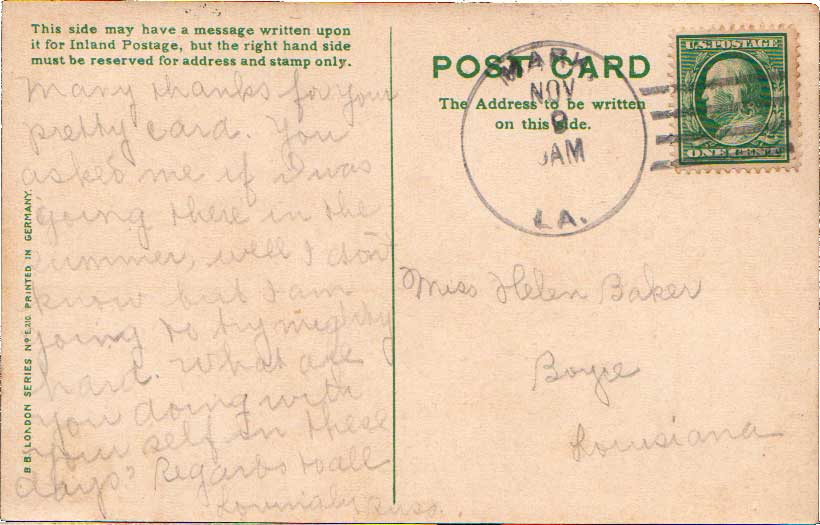 This side may have a message written upon
it for Inland Postage, but the right hand side
must be reserved for address and stamp only.
Many thanks for your
pretty card. You
asked me if I was
going there in the
summer, well I don't
know but I am
going to try mighty
hard. What are
you doing with
your self in these
days? Regards to all
B.B. LONDON SERIES No E.210. PRINTED IN GERMANY.
POST CARD
The Address to be written
on this side.
NOV
9
AM
LA.
U.S. POSTAGE
ONE CENT
Miss Helen Baker
Boyce
Louisiana